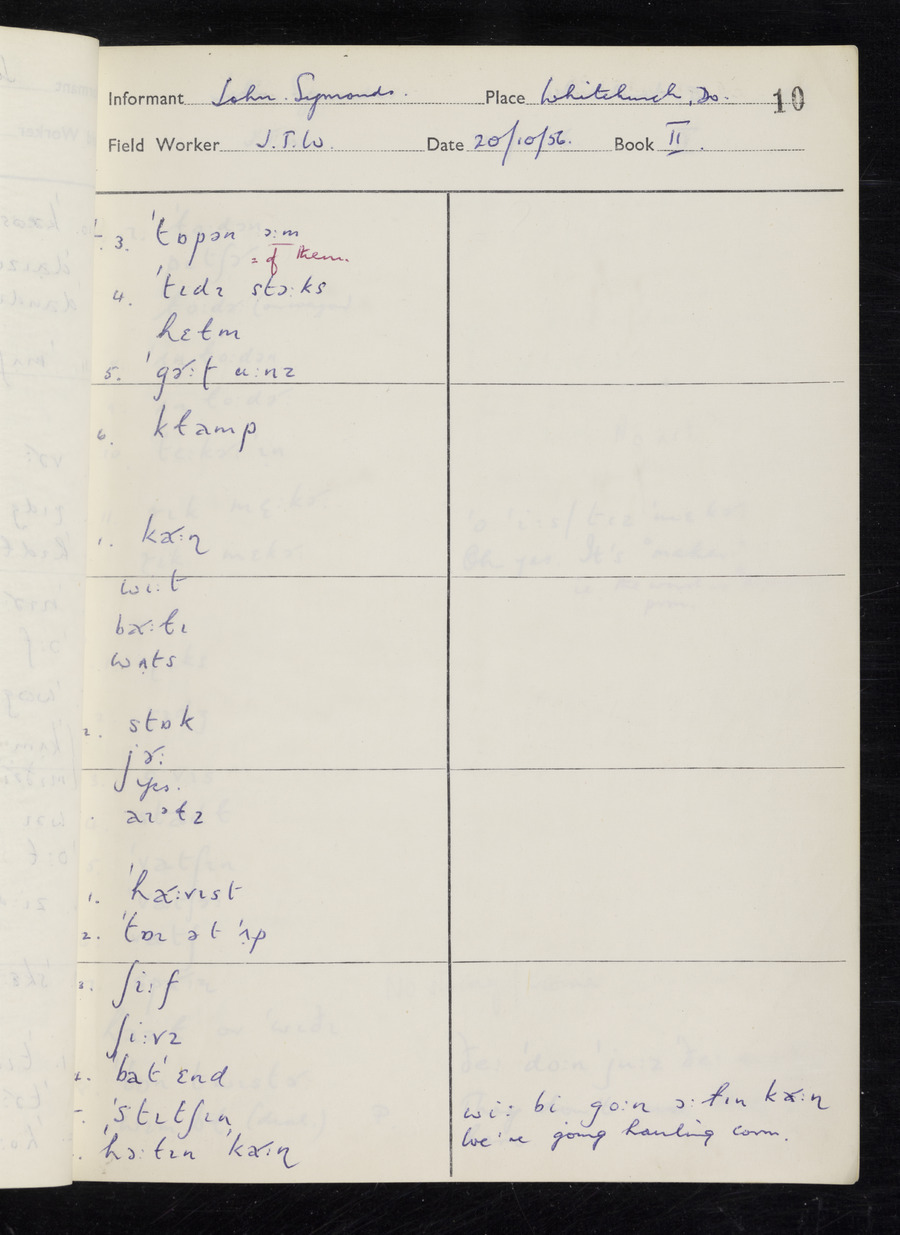 Informant John Symonds. Place Whitchurch, Do. 10
Field Worker J.T.W. Date 20/10/56. Book II.
3. ˈtɒpən ɔ:m
= of them.
4. ˈtɪdɪ stɔ:ks
hɛlm
5. ˈgɚ:t u:nz
6. klamp
1. kɚ:ɳ
wi:t
bɚ:lɪ
wʌts
2. stɒk
jɚ:
yes.
aɪəlz
1. ˈhɚ:vɪst
2. ˈtɒɪ ət ˈʌp
3. ʃi:f
ʃi:vz
4. ˈbat ˈɛnd
ˈstɪtʃɪn
hɔ:lɪn ˈkɚ:ɳ
wi: bi go:n ɔ:lɪn kɚ:ɳ
We're going hauling corn.